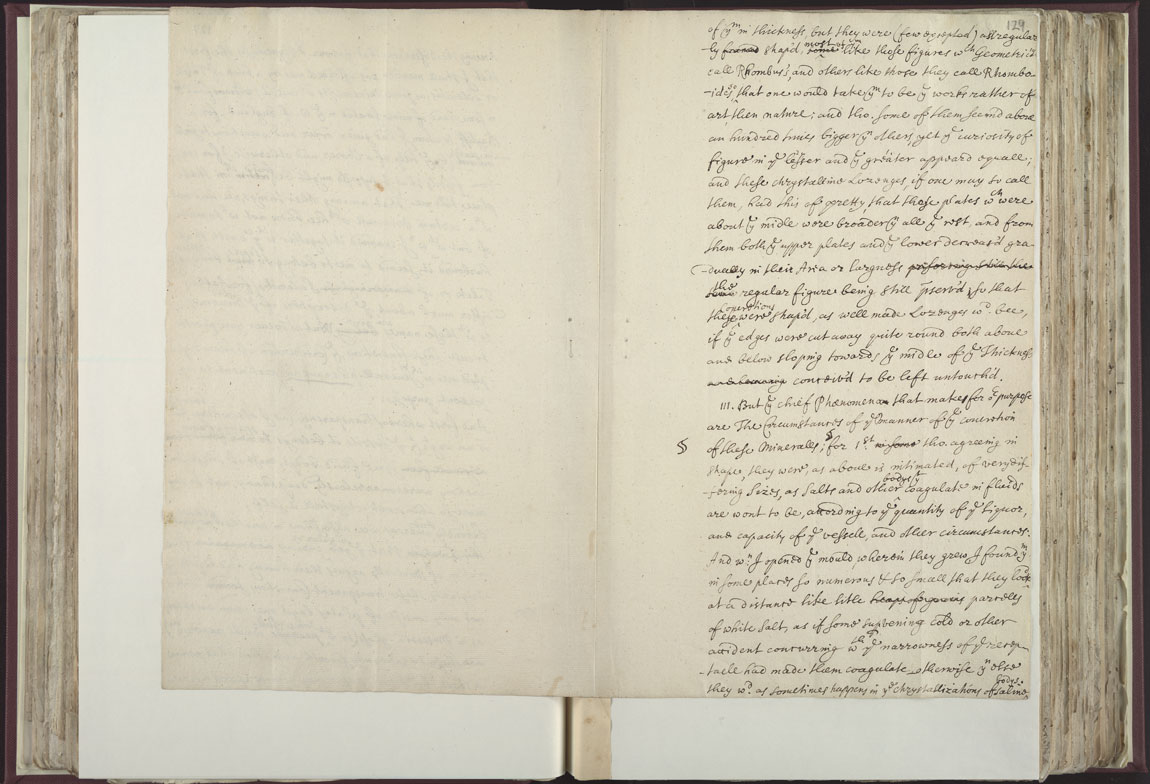 129
of yᵐ in thickness, but they were (few excepted) as regular
ly shap'd, most of yᵐ like those figures wᶜʰ Geometric
call Rhombus's, and others like those they call Rhombo
-ides, so that one would take yᵐ to be yᵉ works rather of
art then nature; and tho. some of them seem'd above
an hundred times bigger yⁿ others, yet yᵉ curiosity of
figure in yᵉ lesser and yᵉ greater appear'd equall;
and these chrystalline Lozenges, if one may so call
them, had this of pretty, that those plates wᶜʰ were
about yᵉ midle were broader yⁿ all yᵉ rest, and from
them both yᵉ upper plates and yᵉ lower decreas'd gra-
-dually in their Area or largness
the regular figure being still p̄serv'd, so that
these concretions were shap'd, as well made Lozenges wᵈ. bee,
if yᵉ edges were cut away quite round both above
and below sloping towards yᵉ midle of yᵉ Thickness
conceiv'd to be left untouch'd.
III. But yᵉ chief Phænomena that makes for oʳ purpose
are The Circumstances of yᵉ manner of yᵉ concretion
§ of these Mineralls; § for 1ˢᵗ. tho. agreeing in
shape, they were, as above is intimated, of very dif
-fering sizes, as salts and other bodys yᵗ coagulate in fluids
are wont to be, according to yᵉ quantity of yᵉ liquor,
and capacity of yᵉ vessell, and other circumstances.
And wⁿ. I opened yᵉ mould wherein they grew, I found yᵐ
in some places so numerous & so small that they look'd
at a distance like litle parcells
of white salt, as if some supvening Cold or other
accident concurring wᵗʰ yᵉ narrowness of yᵉ recep
-tacle had made them coagulate otherwise yⁿ else
they wᵈ. as sometimes happens in yᵉ chrystallizations of saline bodys.